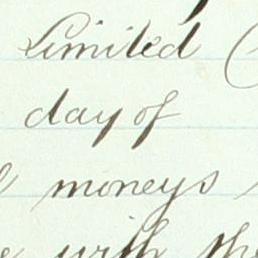 Limited
day of
moneys
with the